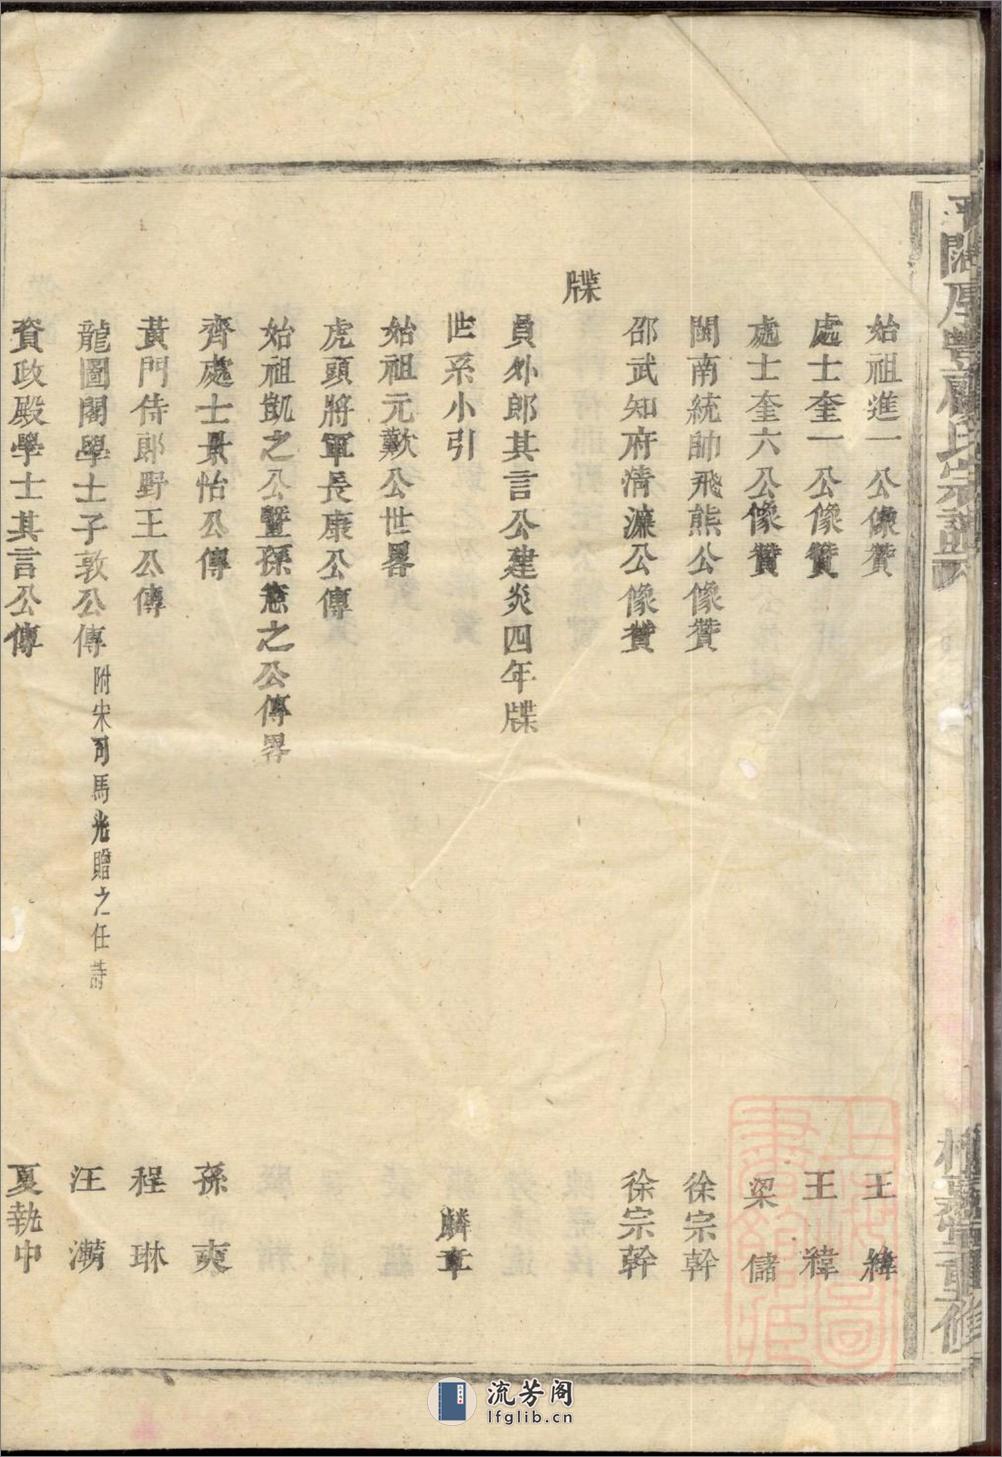 始祖進一公像贊 王緯
處士奎一公像贊 王緯
處士奎六公像贊 梁儲
閩南統帥飛熊公像贊 徐宗幹
邵武知府清濂公像贊 徐宗幹
牒
員外郎其言公建炎四年牒
世系小引 麟章
始祖元歎公世畧
虎頭將軍長康公傳
始祖凱之公暨孫愿之公傳畧
齊處士景怡公傳 孫奭
黃門侍郎野王公傳 程琳
龍圖閣學士子敦公傳附宋司馬光贈之任詩 汪藻
資政殿學士其言公傳 夏執中
流芳阁
lfglib.cn